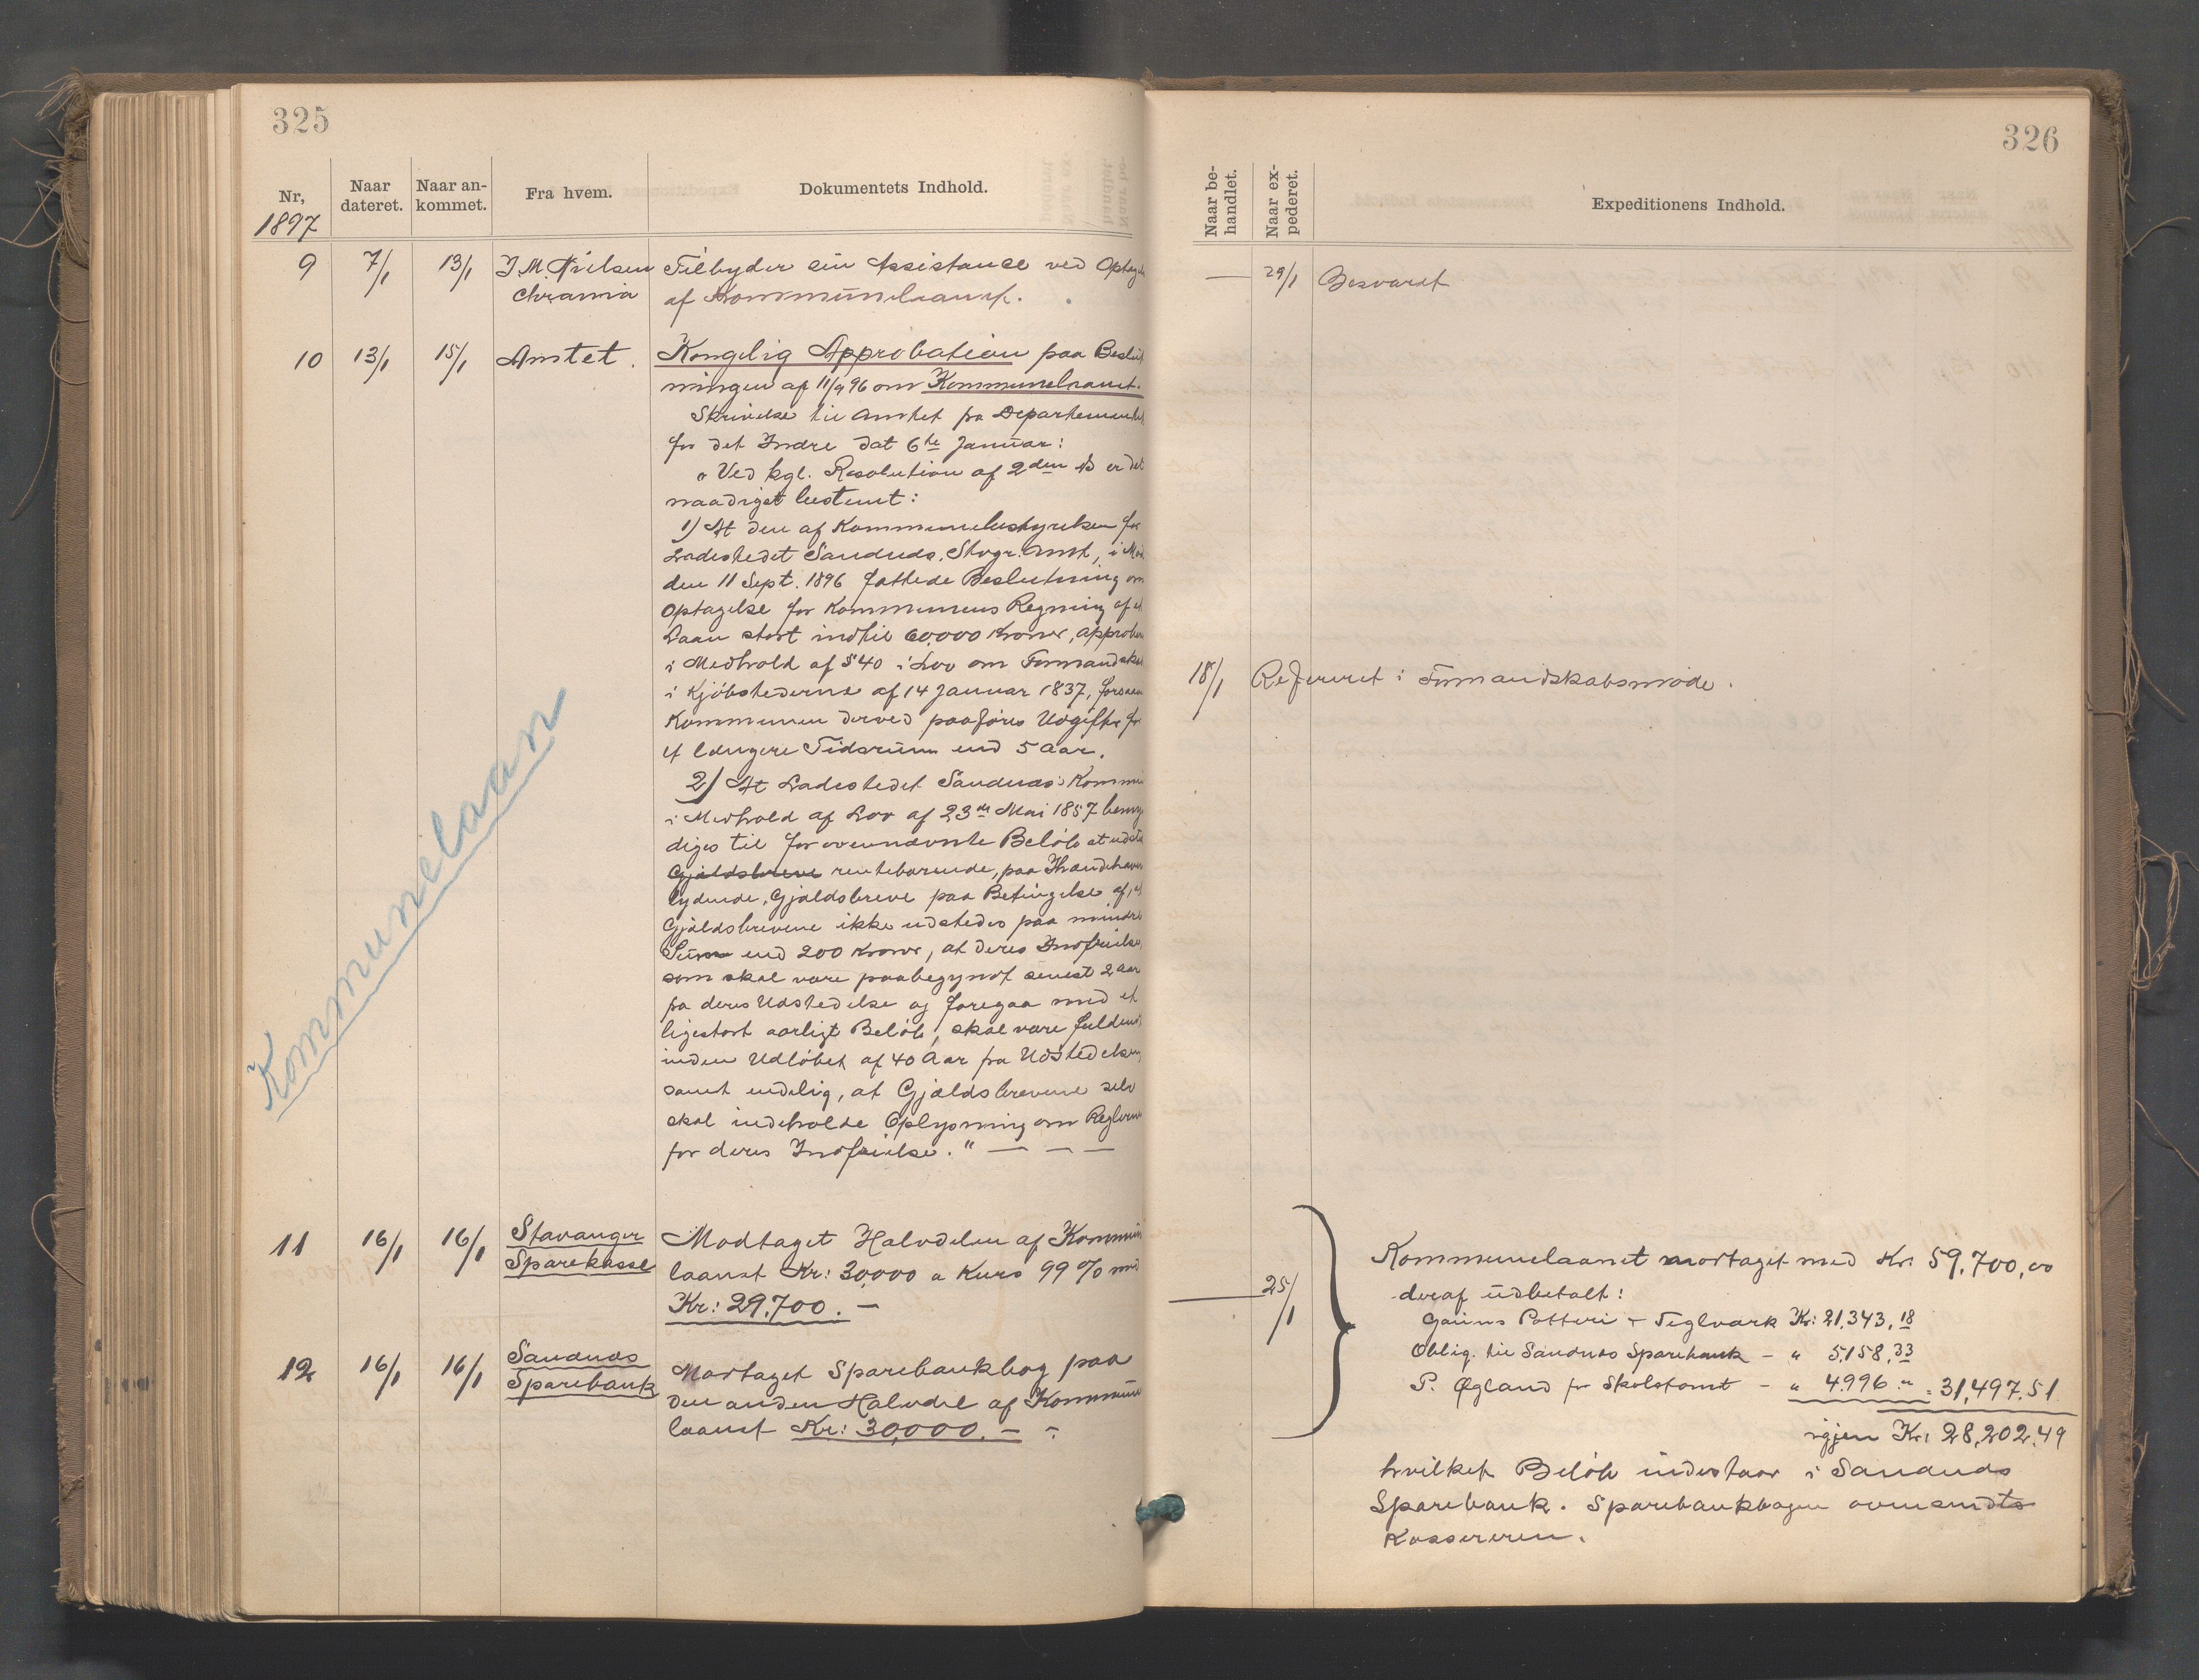 325
Nr,
Naar dateret.
Naar ankommet.
Fra hvem.
Dokumentets Indhold.
1897
9 7/1 13/1 J. M. Nielsen Tilbyder sin Assistance ved Optag
Chrania af Kommunelaanet.
10 13/1 15/1 Amtet. Kongelig Approbation paa Beslut
ningen af 11/9 96 om Kommunelaanet.
Skrivelse til Amtet fra Departementet
for det Indre dat 6te Januar:
"Ved kgl. Resolution af 2den ds er det
naadigst bestemt:
1) At den af Kommunebestyrelsen for
Ladestedet Sandnes, Stvgr. Amt, i Mø
den 11 Sept. 1896 fattede Beslutning om
Optagelse for Kommunens Regning af et
Laan stort indtil 60,000 Kroner, approbe
i Medhold af §40 i Lov om Formandska
i Kjøbstederne af 14 Januar 1837, forsaa
Kommunen derved paaføres Udgifter for
et længere Tidsrum end 5 Aar.
2) At Ladestedet Sandnes's Kommu
i Medhold af Lov af 23de Mai 1857 bemyn
diges til for ovennævnte Beløb at udste
Gjældsbreve rentebærende, paa Ihændehaver
lydende, Gjældsbreve paa Betingelse af, at
Gjældsbrevene ikke udstedes paa mindre
Sum end 200 Kroner, at deres Indfrielse,
som skal være paabegyndt senest 2 Aar
fra deres Udstedelse og foregaa med et
ligestort aarligt Beløb, skal være fuldend
inden Udløbet af 40 Aar fra Udstedelsen,
samt endelig, at Gjældsbrevene selv
skal indeholde Oplysning om Reglerne
for deres Indfrielse." — — —
Kommunelaan
11 16/1 16/1 Stavanger Modtaget Halvdelen af Kommun
Sparekasse laanet Kr: 30,000 a Kurs 99 % med
Kr: 29,700. —
12 16/1 16/1 Sandnes Modtaget Sparebankbog paa
Sparebank den anden Halvdel af Kommune
laanet Kr: 30,000. —
326
Naar behandlet.
Naar expederet.
Expeditionens Indhold.
— 29/1 Besvaret
18/1 Refereret i Formandskabsmøde.
— 25/1
Kommunelaanet modtaget med Kr. 59,700,00
deraf udbetalt:
Ganns Potteri & Teglværk Kr: 21,343,18
Oblig. til Sandnes Sparebank - " 5,158,33
P. Øgland for Skoletomt - " 4996 " = 31,497.51
igjen Kr: 28,202.49
hvilket Beløb indestaar i Sandnes
Sparebank. Sparebankbogen oversendtes
Kassereren.